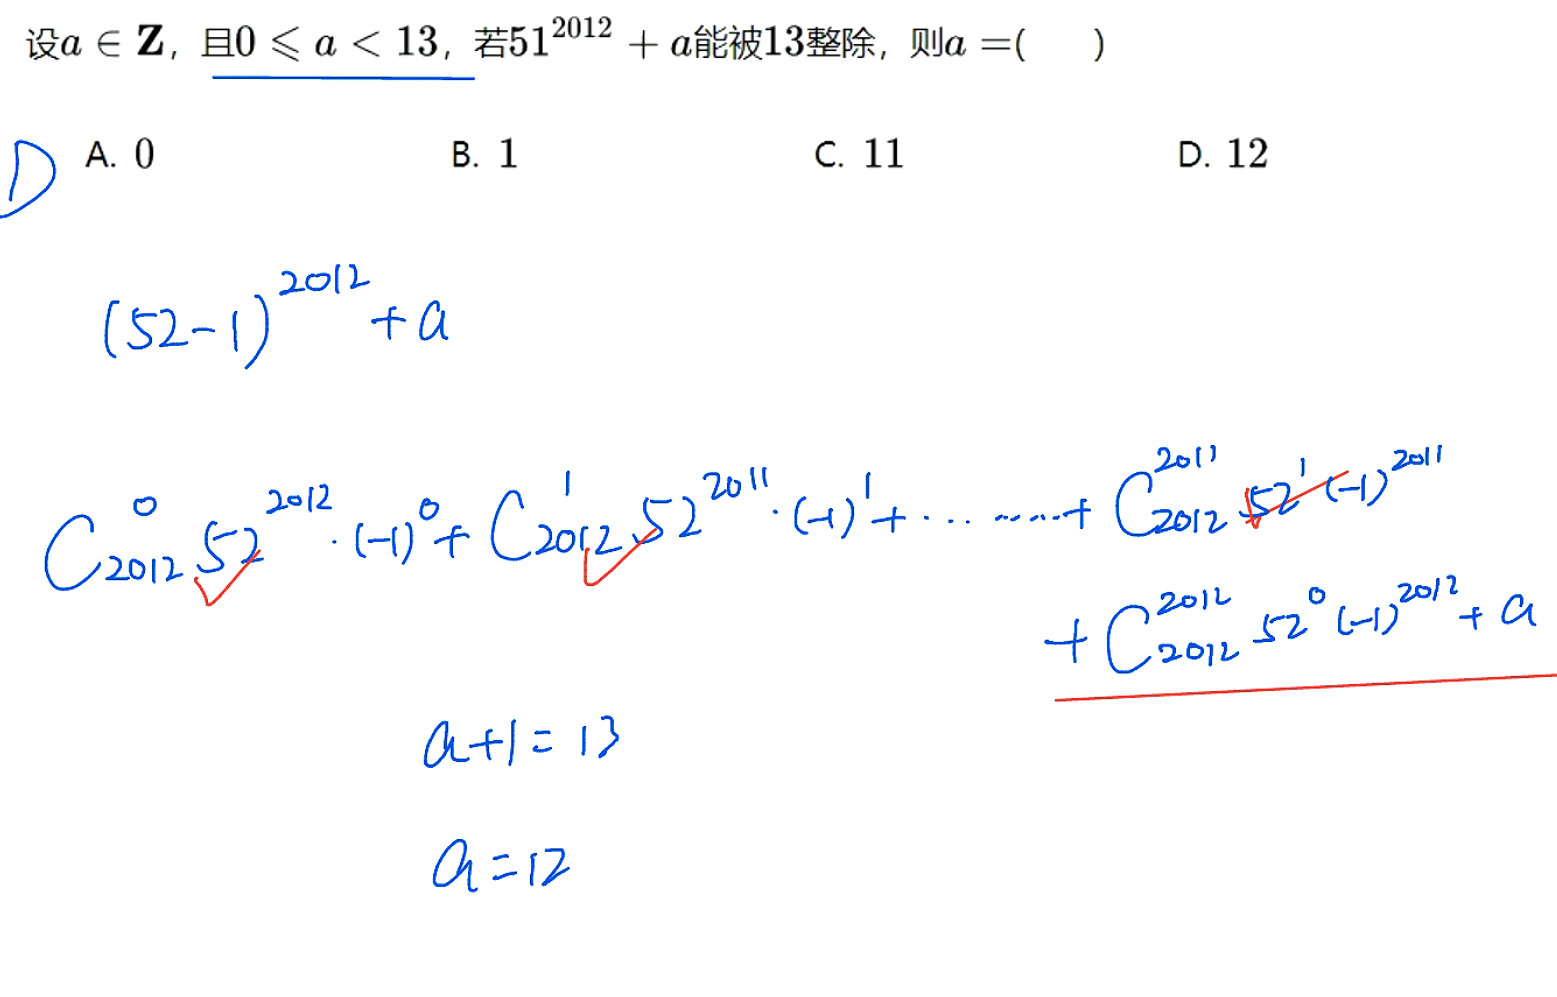 设a ∈ Z，且0 ⩽ a < 13，若51^2012 + a能被13整除，则a =(　　)
D
A. 0 B. 1 C. 11 D. 12
(52-1)^2012 + a
C_2012^0 52^2012 · (-1)^0 + C_2012^1 52^2011 · (-1)^1 + ⋯ ⋯⋯ + C_2012^2011 52^1 (-1)^2011
+ C_2012^2012 52^0 (-1)^2012 + a
a+1=13
a=12